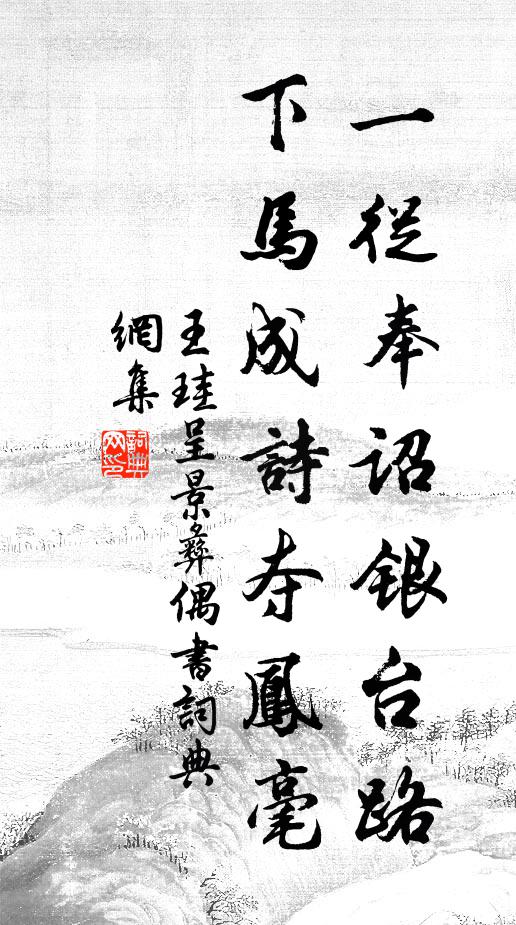 一從奉詔銀台路
下馬成詩夺鳳毫
王珪呈景彝偶書詞典
網集